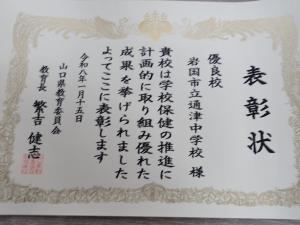 表彰状
優良校
岩国市立通津中学校 様
貴校は学校保健の推進に
計画的に取り組み優れた
成果を挙げられました
よってここに表彰します
令和八年一月十五日
山口県教育委員会
教育長 繁吉 健志